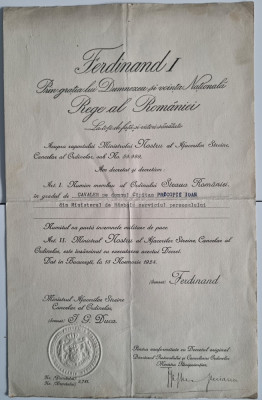 Ferdinand I
Prin grația lui Dumnezeu și voința Națională
Rege al României
La toți de față și viitori sănătate
Asupra raportului Ministrului Nostru al Afacerilor Streine,
Cancelar al Ordinelor, sub No.
Am decretat și decretăm:
Art. I. Numim membru al Ordinului Steaua României,
în gradul de CAVALER pe Domnul Căpitan IOAN
din Ministerul de Răsboiu serviciul personalului
Numitul va purta însemnele militare de pace
Art. II. Ministrul Nostru al Afacerilor Streine, Cancelar al
Ordinelor, este însărcinat cu executarea acestui Decret.
Dat în București, la 15 Noemvrie 1924.
(semnat) Ferdinand
Ministrul Afacerilor Streine
Cancelar al Ordinelor,
(semnat) I. G. Duca.
Pentru conformitate cu Decretul original:
Directorul Protocolului și Cancelariei Ordinelor
No. Decretului
No. Brevetului